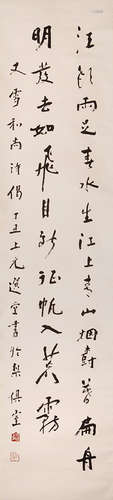 江頭雨足春水生江上青山烟樹昏扁舟
明發去如飛目斷征帆入蒼霧
又雪和尚詩偈丁丑上元選堂書於梨俱室